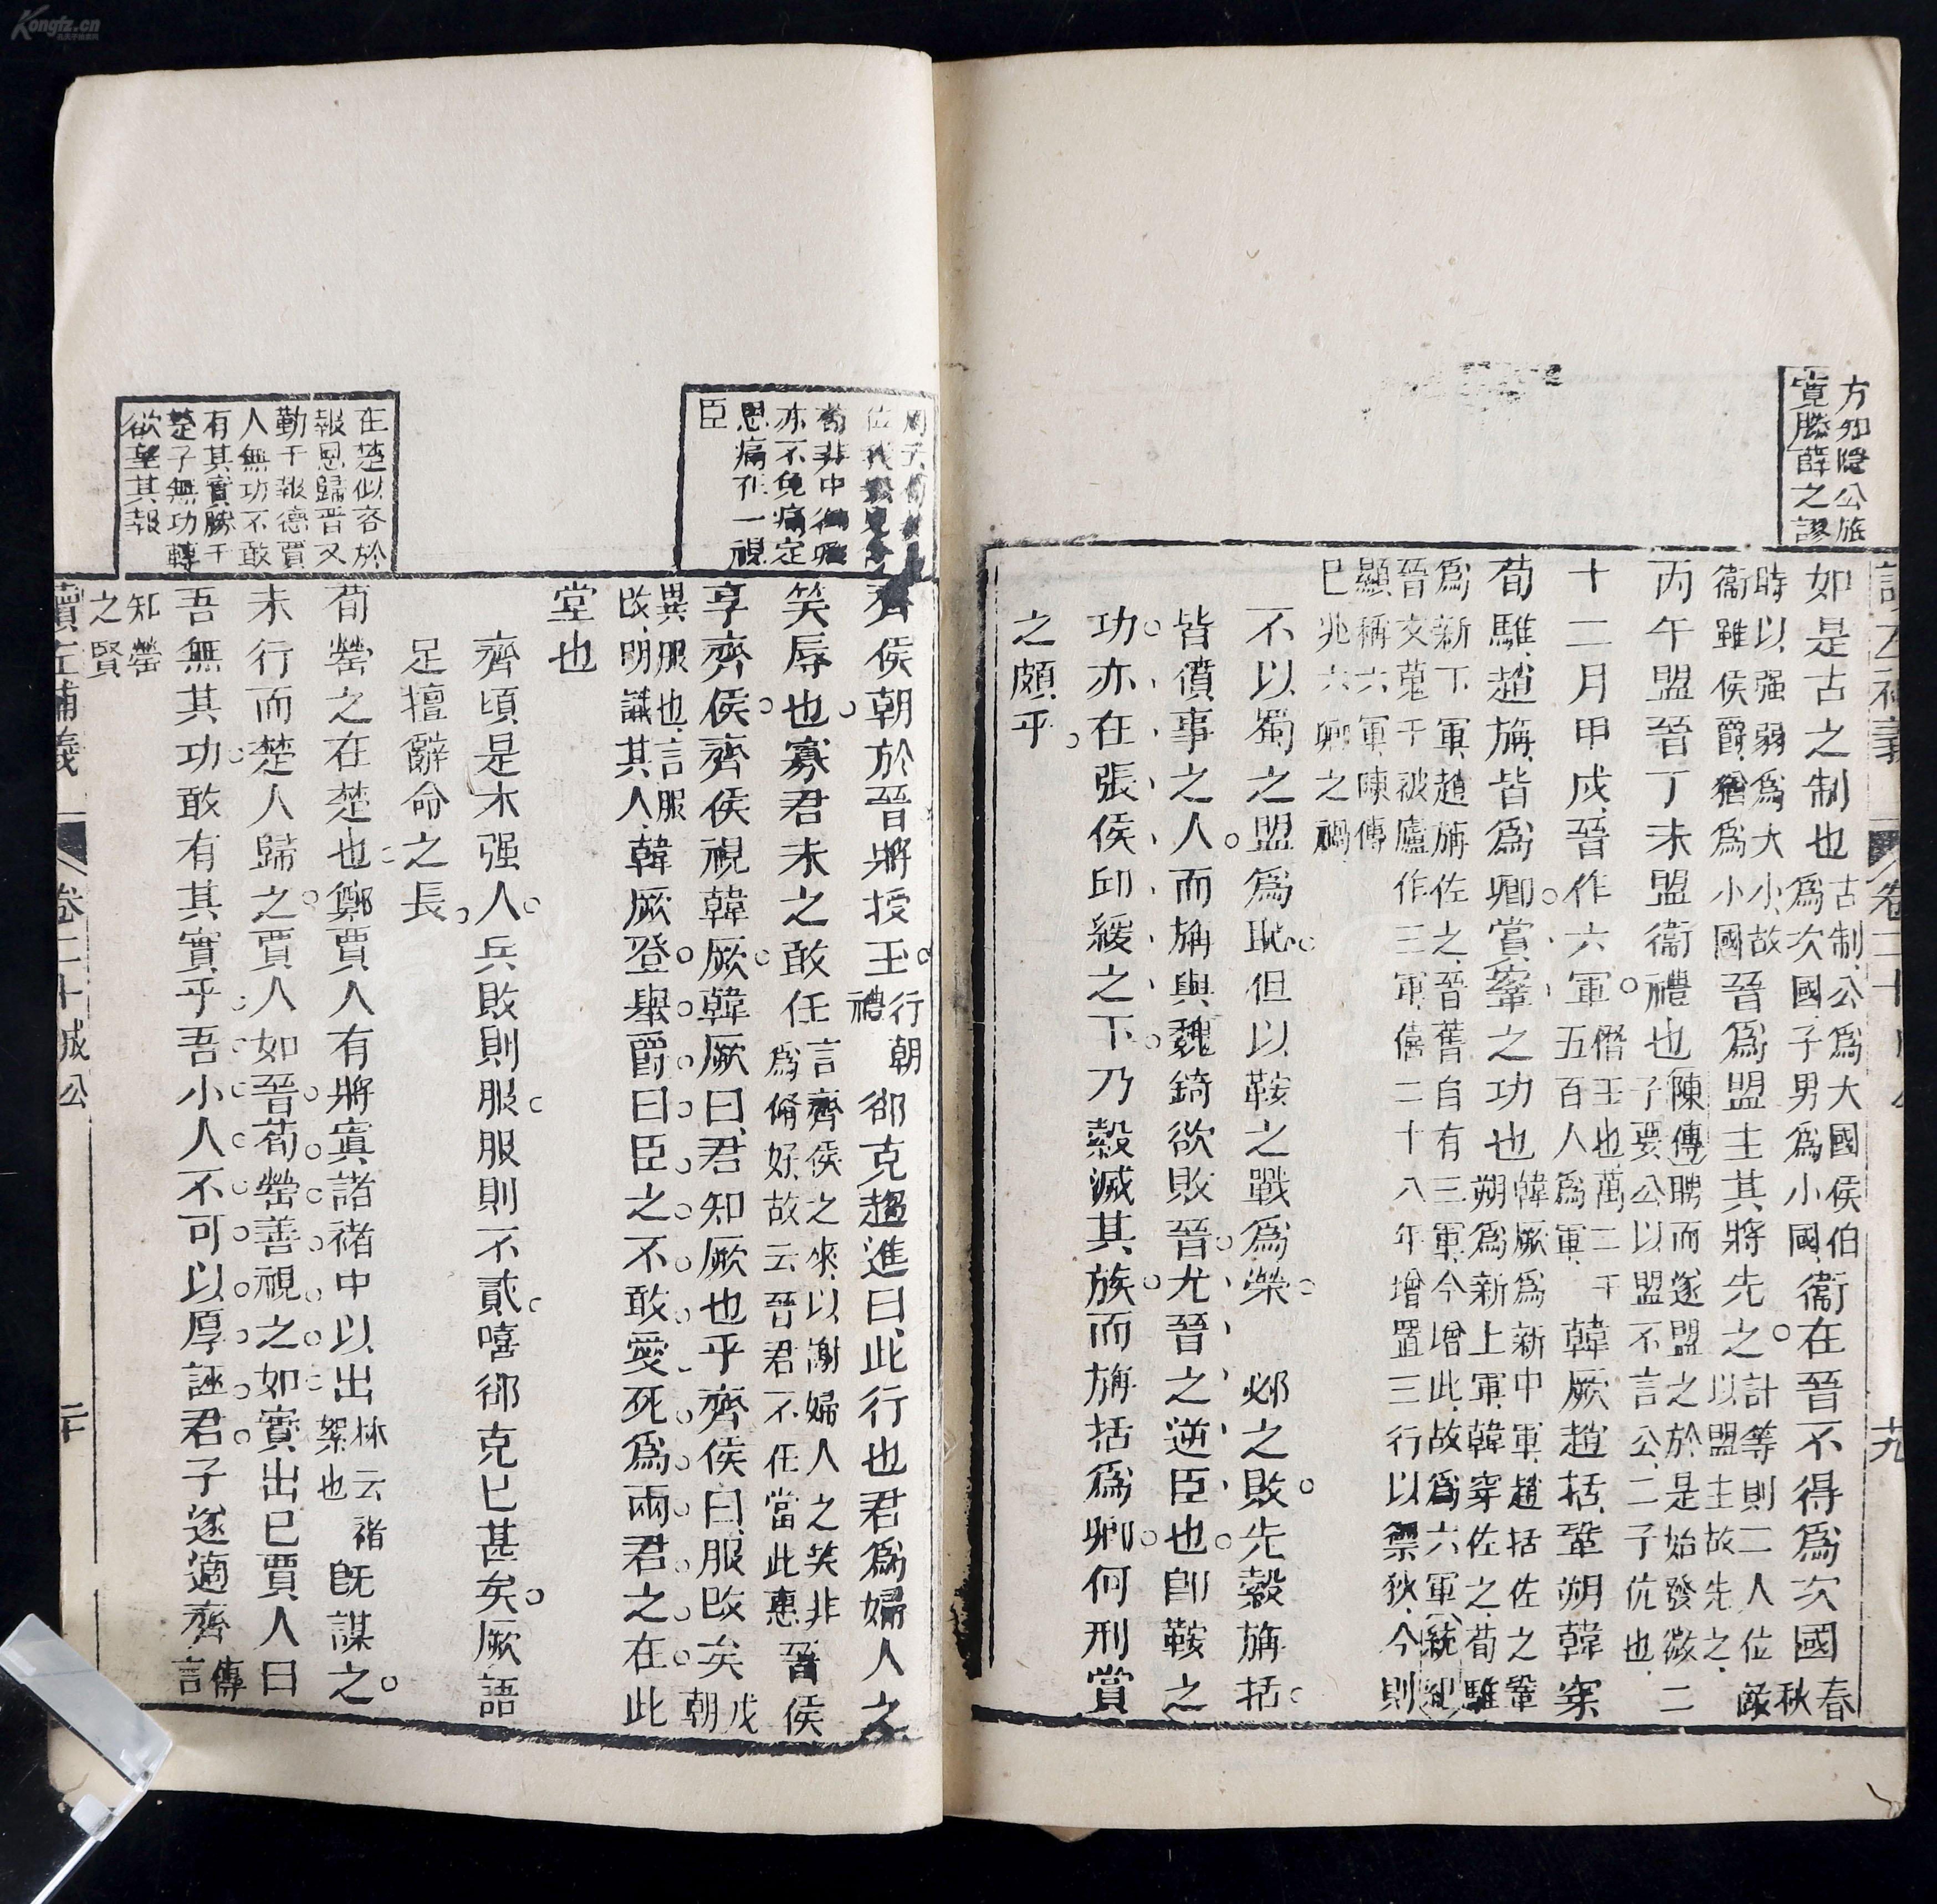 方知隱公旅
寛滕薛之謬
卷二十成公
十九
如是古之制也
古制公爲大國侯伯
爲次國子男爲小國
衞在晉不得爲次國
春
秋
時以强弱爲大小故
衞雖侯爵猶爲小國
晉爲盟主其將先之
計等則二人位敵
以盟主故先之
丙午盟晉丁未盟衞禮也
陳傳聘而遂盟之於是始發微二
子要公以盟不言公二子伉也
十二月甲戌晉作六軍
僭王也萬二千
五百人爲軍
韓厥趙括鞏朔韓穿
荀騅趙旃皆爲卿賞鞌之功也
韓厥爲新中軍趙括佐之鞏
朔爲新上軍韓穿佐之荀騅
爲新下軍趙旃佐之晉舊自有三軍今增此故爲六軍統紀
晉文蒐于被廬作三軍僖二十八年增置三行以禦狄今則
顯稱六軍陳傳
已兆六卿之禍
不以蜀之盟爲恥但以鞍之戰爲榮 邲之敗先縠旃括
皆僨事之人而旃與魏錡欲敗晉尤晉之逆臣也卽鞍之
功亦在張侯邱緩之下乃縠滅其族而旃括爲卿何刑賞
之頗乎
亦不免痛定
思痛在一視
臣
齊侯朝於晉將授玉
行朝
禮
郤克趨進曰此行也君爲婦人之
笑辱也寡君未之敢任
言齊侯之來以謝婦人之笑非
爲脩好故云晉君不任當此惠
晉侯
享齊侯齊侯視韓厥韓厥曰君知厥也乎齊侯曰服改矣
戎
朝
異服也言服
改明識其人
韓厥登舉爵曰臣之不敢愛死爲兩君之在此
堂也
齊頃是木强人兵敗則服服則不貳嘻郤克已甚矣厥語
足擅辭命之長
在楚似吝於
報恩歸晉又
勤于報德賈
人無功不敢
有其實勝于
楚子無功轉
欲望其報
荀罃之在楚也鄭賈人有將寘諸褚中以出
林云褚
絮也
旣謀之
未行而楚人歸之賈人如晉荀罃善視之如實出已賈人曰
吾無其功敢有其實乎吾小人不可以厚誣君子遂適齊
傳
言
知罃
之賢
讀左補義
卷二十成公
二十